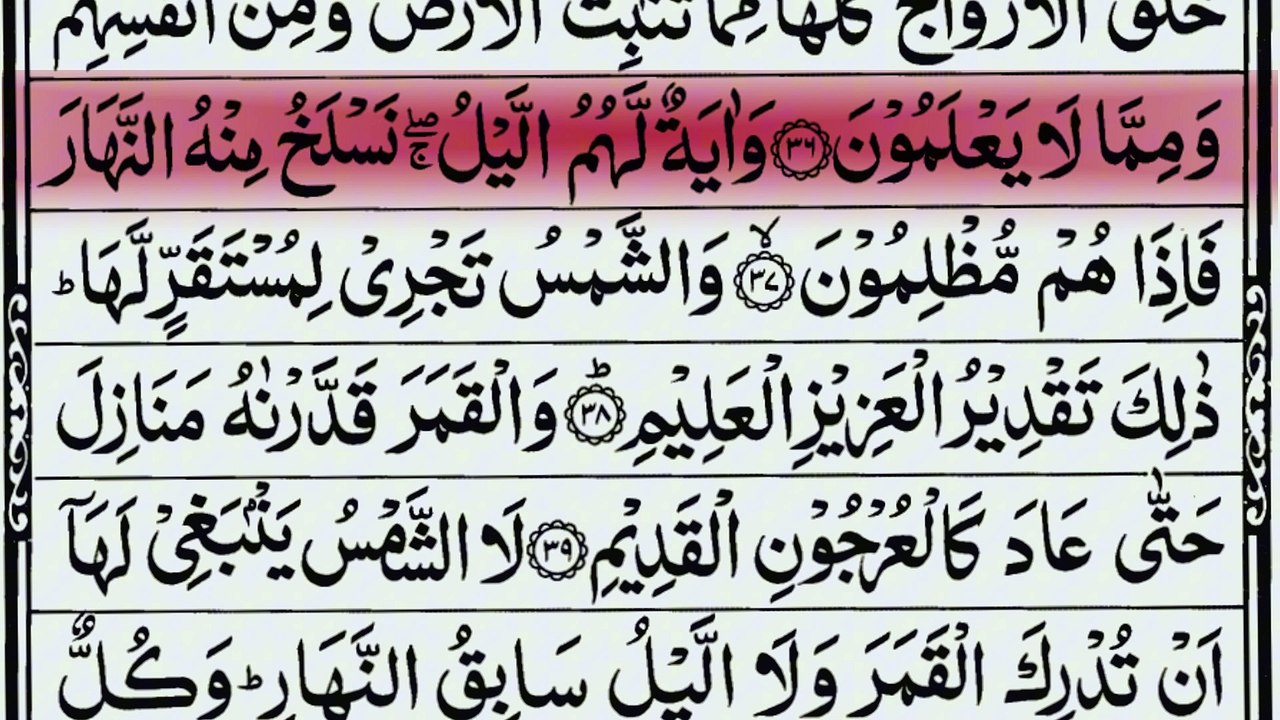 خَلَقَ الْاَزْوَاجَ كُلَّهَا مِمَّا تُنْۢبِتُ الْاَرْضُ وَمِنْ اَنْفُسِهِمْ
وَمِمَّا لَا يَعْلَمُوْنَ ﴿۳۶﴾ وَاٰيَةٌ لَّهُمُ الَّيْلُ ۖۚ نَسْلَخُ مِنْهُ النَّهَارَ
فَاِذَا هُمْ مُّظْلِمُوْنَ ﴿۳۷﴾ۙ وَالشَّمْسُ تَجْرِيْ لِمُسْتَقَرٍّ لَّهَا ؕ
ذٰلِكَ تَقْدِيْرُ الْعَزِيْزِ الْعَلِيْمِ ﴿۳۸﴾ؕ وَالْقَمَرَ قَدَّرْنٰهُ مَنَازِلَ
حَتّٰى عَادَ كَالْعُرْجُوْنِ الْقَدِيْمِ ﴿۳۹﴾ لَا الشَّمْسُ يَنْۢبَغِيْ لَهَاۤ
اَنْ تُدْرِكَ الْقَمَرَ وَلَا الَّيْلُ سَابِقُ النَّهَارِ ؕ وَكُلٌّ